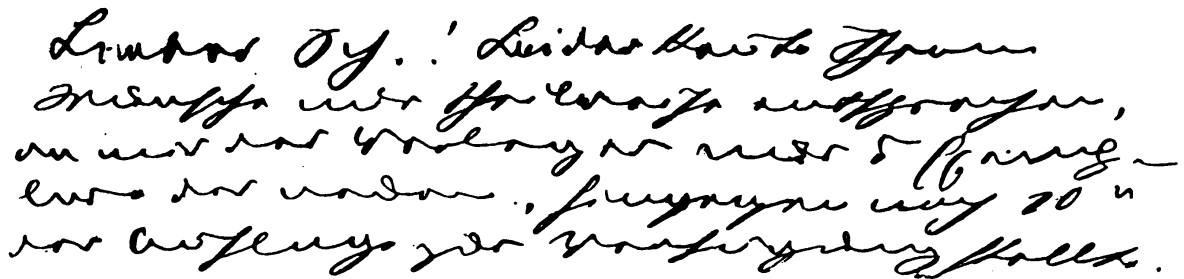 Lieber Sch.! Leider konnte Ihrem
Wunsche nur theilweise entsprechen,
da mir der Verleger nur 5 Exempl-
are der neuen, hingegen noch 20 "
der Auflage zur Verfügung stellte.